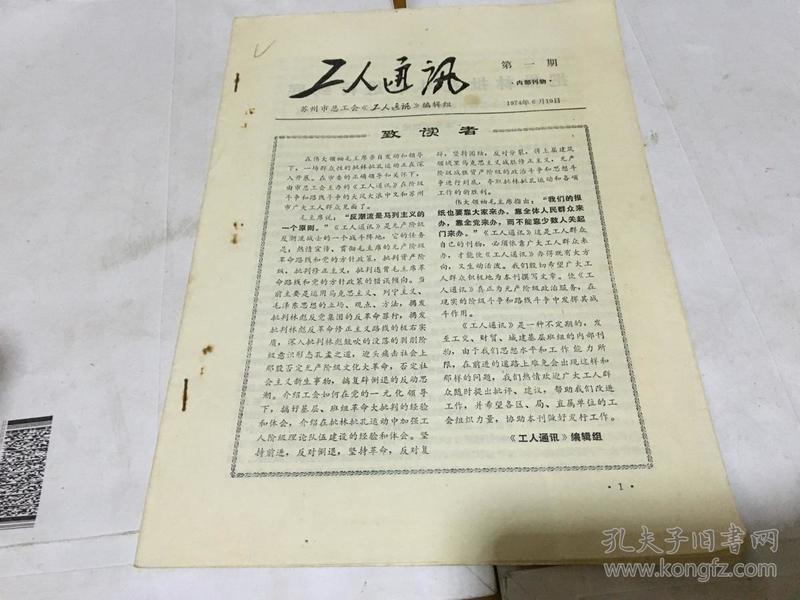 工人通讯
第一期
·内部刊物·
苏州市总工会《工人通讯》编辑组
1974年6月19日
致读者
在伟大领袖毛主席亲自发动和领导
下，一场群众性的批林批孔运动正在深
入开展。在市委的正确领导和关怀下，
由市总工会主办的《工人通讯》在阶级
斗争和路线斗争的大风大浪中又和苏州
市广大工人群众见面了。
毛主席说：“反潮流是马列主义的
一个原则。”《工人通讯》是无产阶级
反潮流战士的一个战斗阵地，它的任务
是，热情宣传、贯彻毛主席的无产阶级
革命路线和党的方针政策，批判资产阶
级，批判修正主义，批判违背毛主席革
命路线和党的方针政策的错误倾向。当
前主要是运用马克思主义、列宁主义、
毛泽东思想的立场、观点、方法，揭发
批判林彪反党集团的反革命罪行，揭发
批判林彪反革命修正主义路线的极右实
质，深入批判林彪鼓吹的没落的剥削阶
级意识形态孔孟之道，迎头痛击社会上
那股否定无产阶级文化大革命，否定社
会主义新生事物，搞复辟倒退的反动思
潮。介绍工会如何在党的一元化领导
下，搞好基层、班组革命大批判的经验
和体会，介绍在批林批孔运动中加强工
人阶级理论队伍建设的经验和体会。坚
持前进，反对倒退，坚持革命，反对复
辟，坚持团结，反对分裂，将上层建筑
领域里马克思主义战胜修正主义，无产
阶级战胜资产阶级的政治斗争和思想斗
争进行到底，夺取批林批孔运动和各项
工作的新胜利。
伟大领袖毛主席指出：“我们的报
纸也要靠大家来办，靠全体人民群众来
办，靠全党来办，而不能靠少数人关起
门来办。”《工人通讯》这是工人群众
自己的刊物，必须依靠广大工人群众来
办，才能使《工人通讯》办得既有大方
向，又生动活泼。我们殷切希望广大工
人群众积极地为本刊撰写文章。使《工
人通讯》真正为无产阶级政治服务，在
现实的阶级斗争和路线斗争中发挥其战
斗作用。
《工人通讯》是一种不定期的，发
至工交、财贸、城建基层班组的内部刊
物，由于我们思想水平和工作能力所
限，在前进的道路上难免会出现这样和
那样的问题，我们热情欢迎广大工人群
众随时提出批评、建议，帮助我们改进
工作，并希望各区、局、直属单位的工
会组织力量，协助本刊做好发行工作。
《工人通讯》编辑组
·1·
孔夫子旧书网
www.kongfz.com